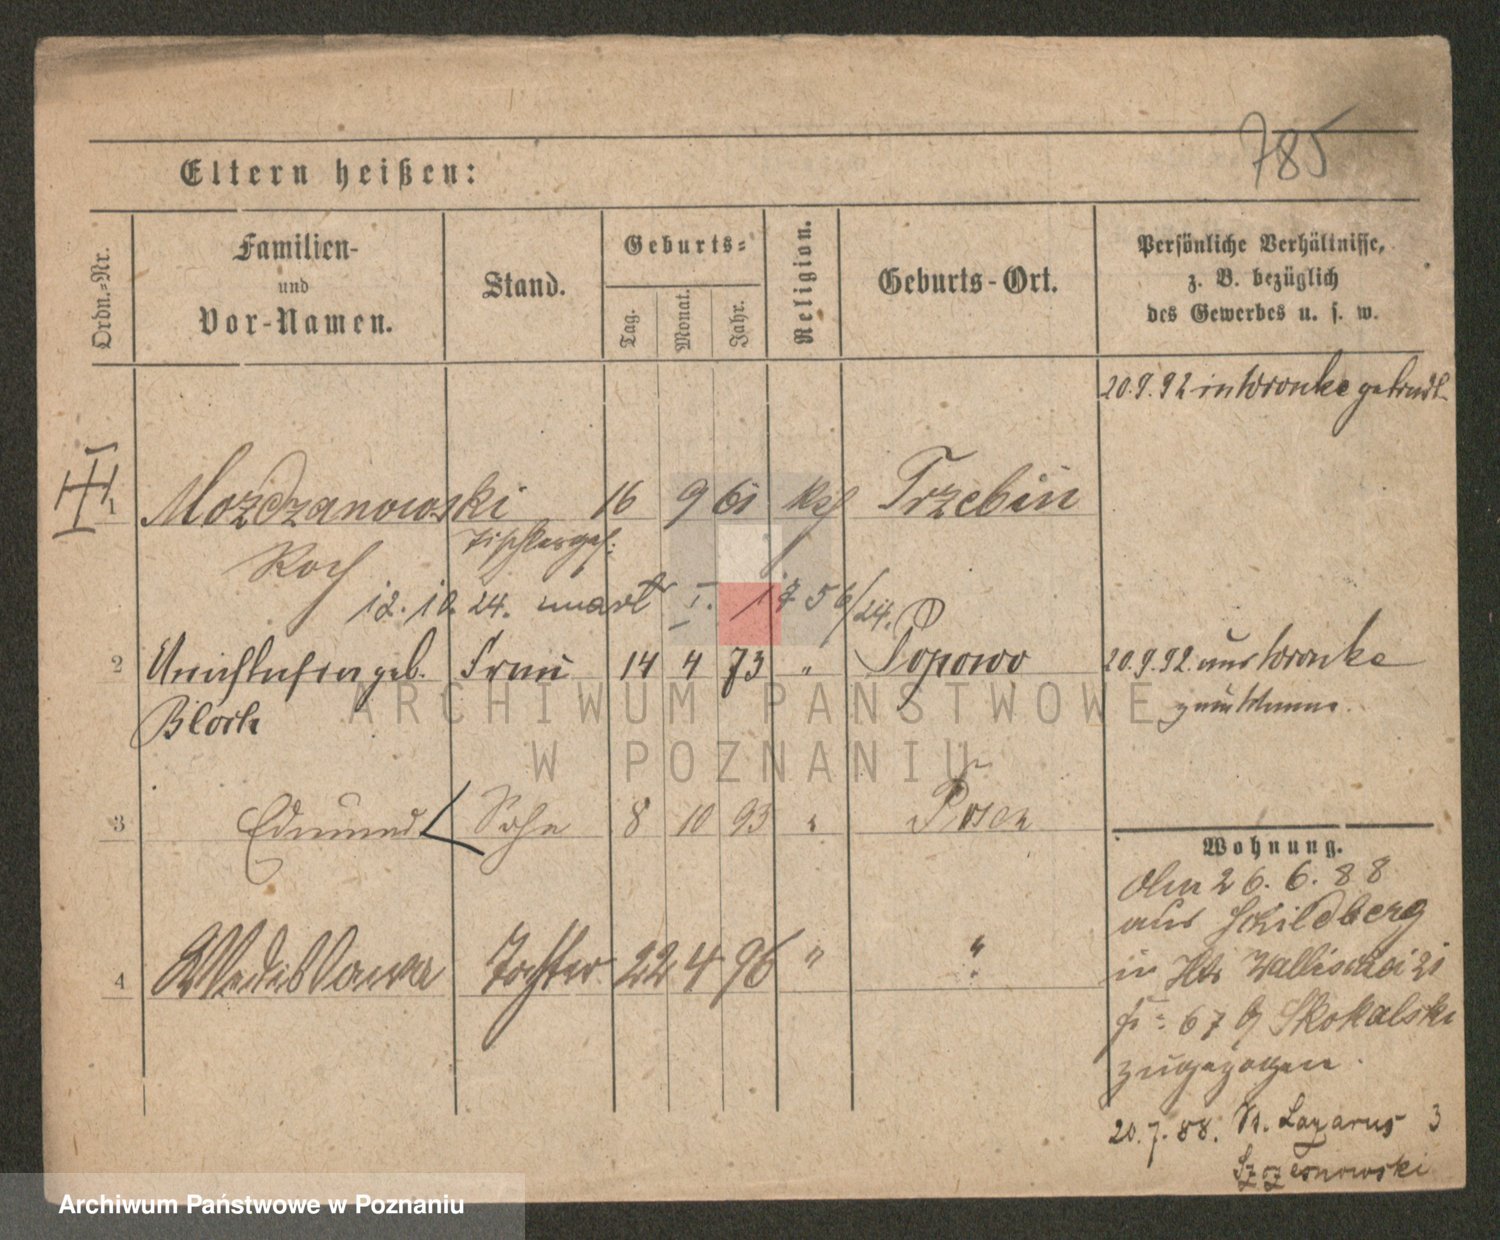 785
Eltern heißen:
Ordn.-Nr.
Familien-
und
Vor-Namen.
Stand.
Geburts-
Tag.
Monat.
Jahr.
Religion.
Geburts-Ort.
Persönliche Verhältnisse,
z. B. bezüglich
des Gewerbes u. s. w.
20.9.92 in Wronke getraut
1 Mozdzanowski 16 9 61 kath Trzebin
Roch Tischlerges:
12.10.24. I. 1756/24.
2 geb. Frau 14 4 73 " Popowo 20.9.92 aus Wronke
Block
3 Edmund Sohn 8 10 93 " Posen
Wohnung.
Am 26.6.88
aus Schildberg
in Wallischei 21
67 Skokalski
zugezogen.
4 Tochter 22 4 96 " "
20.7.88. St. Lazarus 3
Szczesnowski
ARCHIWUM PAŃSTWOWE
W POZNANIU
Archiwum Państwowe w Poznaniu